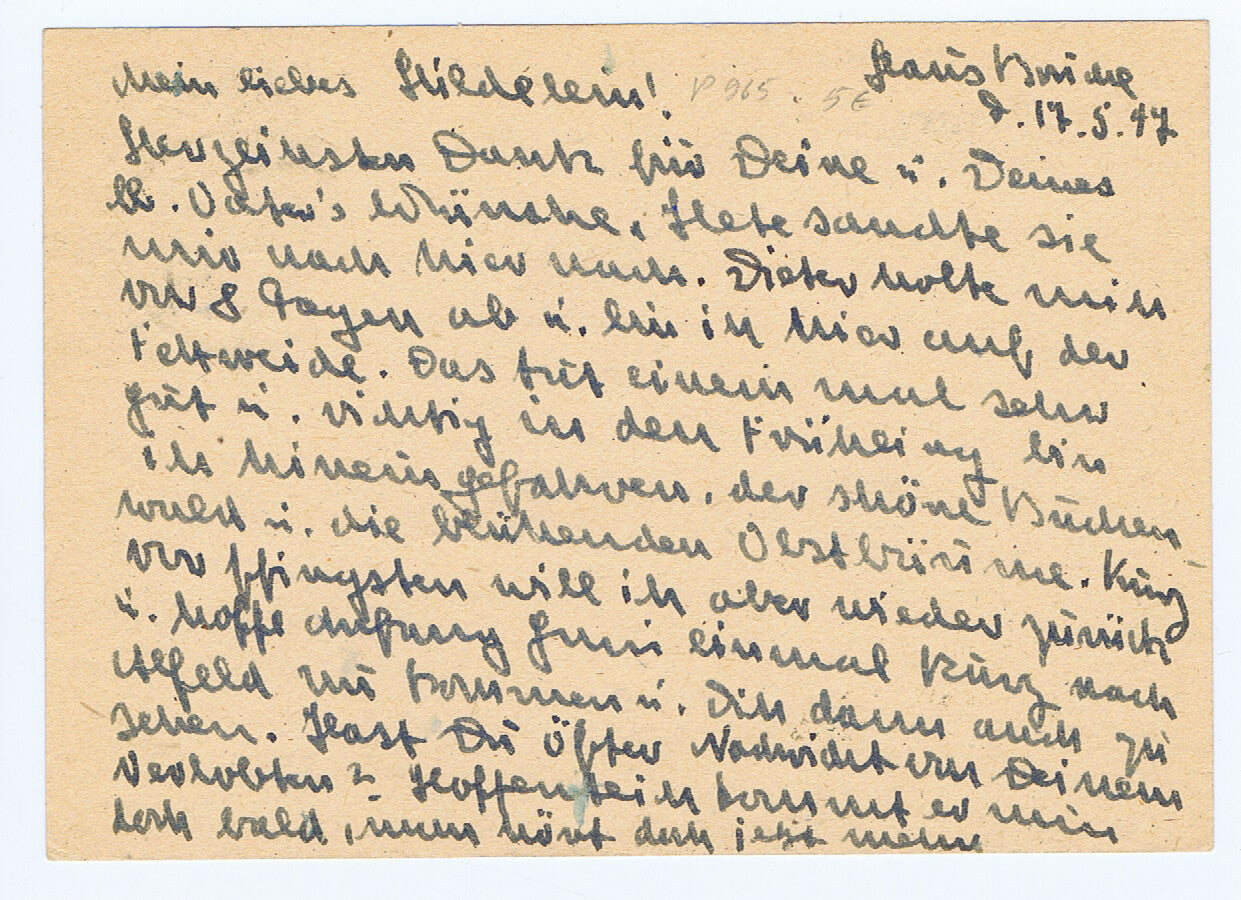 Mein liebes Hildelein! P 965. 5 € Haus Brüche
d. 17.5.47
Herzlichsten Dank für Deine u. Deines
lb. Vater's Wünsche, Hete sandte sie
mir nach hier nach. Dieter holte mich
vor 8 Tagen ab u. bin ich hier auf der
Fettweide. Das tut einem mal sehr
gut u. richtig in den Frühling bin
ich hineingefahren, der schöne Buchen-
wald u. die blühenden Obstbäume. Kurz
vor Pfingsten will ich aber wieder zurück
u. hoffe Anfang Juni einmal kurz nach
Alfeld zu kommen u. Dich dann auch zu
sehen. Hast Du öfter Nachricht von Deinem
Verlobten? Hoffentlich kommt er nun
doch bald, man hört doch jetzt mehr